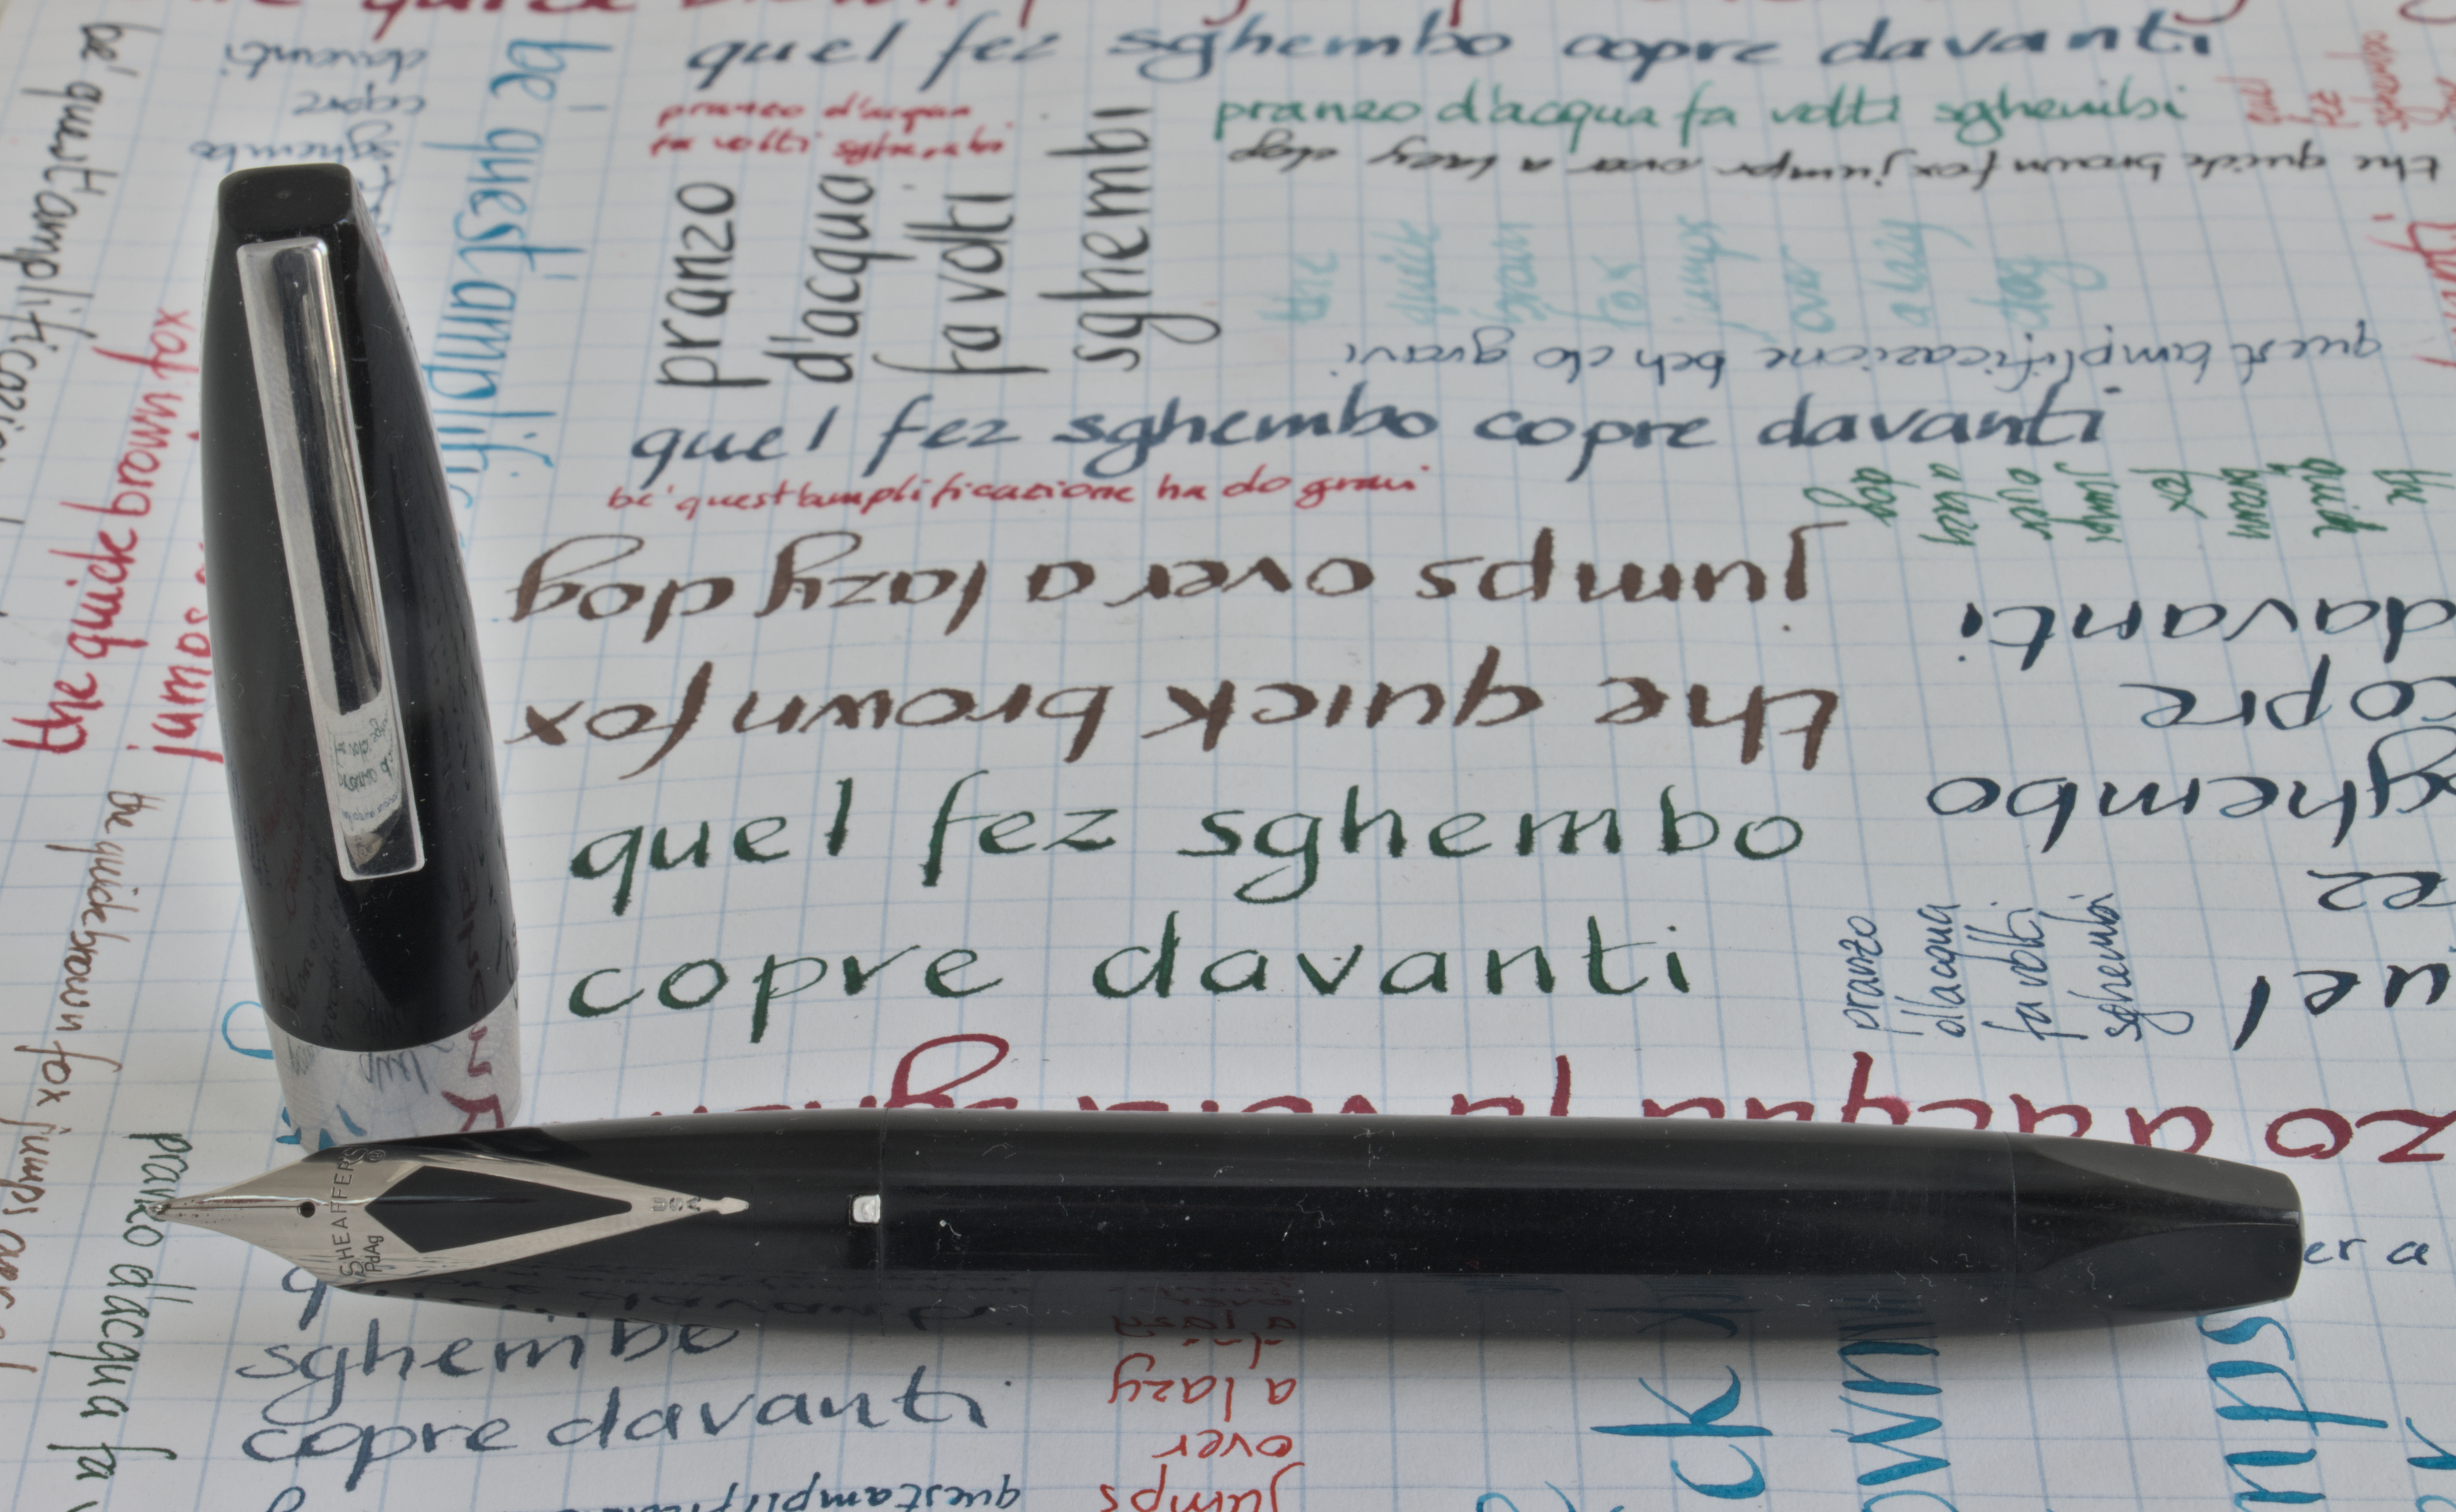 quel fez sghembo copre davanti
be' quest'amplificazione
davanti
copre
sghembo
be' quest'amplific
pranzo d'acqua
fa volti sghembi
pranzo d'acqua fa volti sghembi
the quick brown fox jumps over a lazy dog
pranzo
d'acqua
fa volti
sghembi
the
quick
brown
fox
jumps
over
a lazy
dog
quest'amplificazione beh do gravi
quel fez sghembo copre davanti
be' quest'amplificazione ha do gravi
the
quick
brown
fox
jumps
over
a lazy
dog
the quick brown fox
jumps
the quick brown fox
jumps over a lazy dog
quel fez sghembo
copre davanti
uel
ez
ghembo
copre
davanti
pranzo
d'acqua
fa volti
sghembi
the quick brown fox jumps over
zo d'acqua fa volti sghem
pranzo d'acqua fa v
SHEAFFER'S
PdAg
USA
er a
sghembo
copre davanti
jumps
over
a lazy
quest'amplific
ck
own
mps